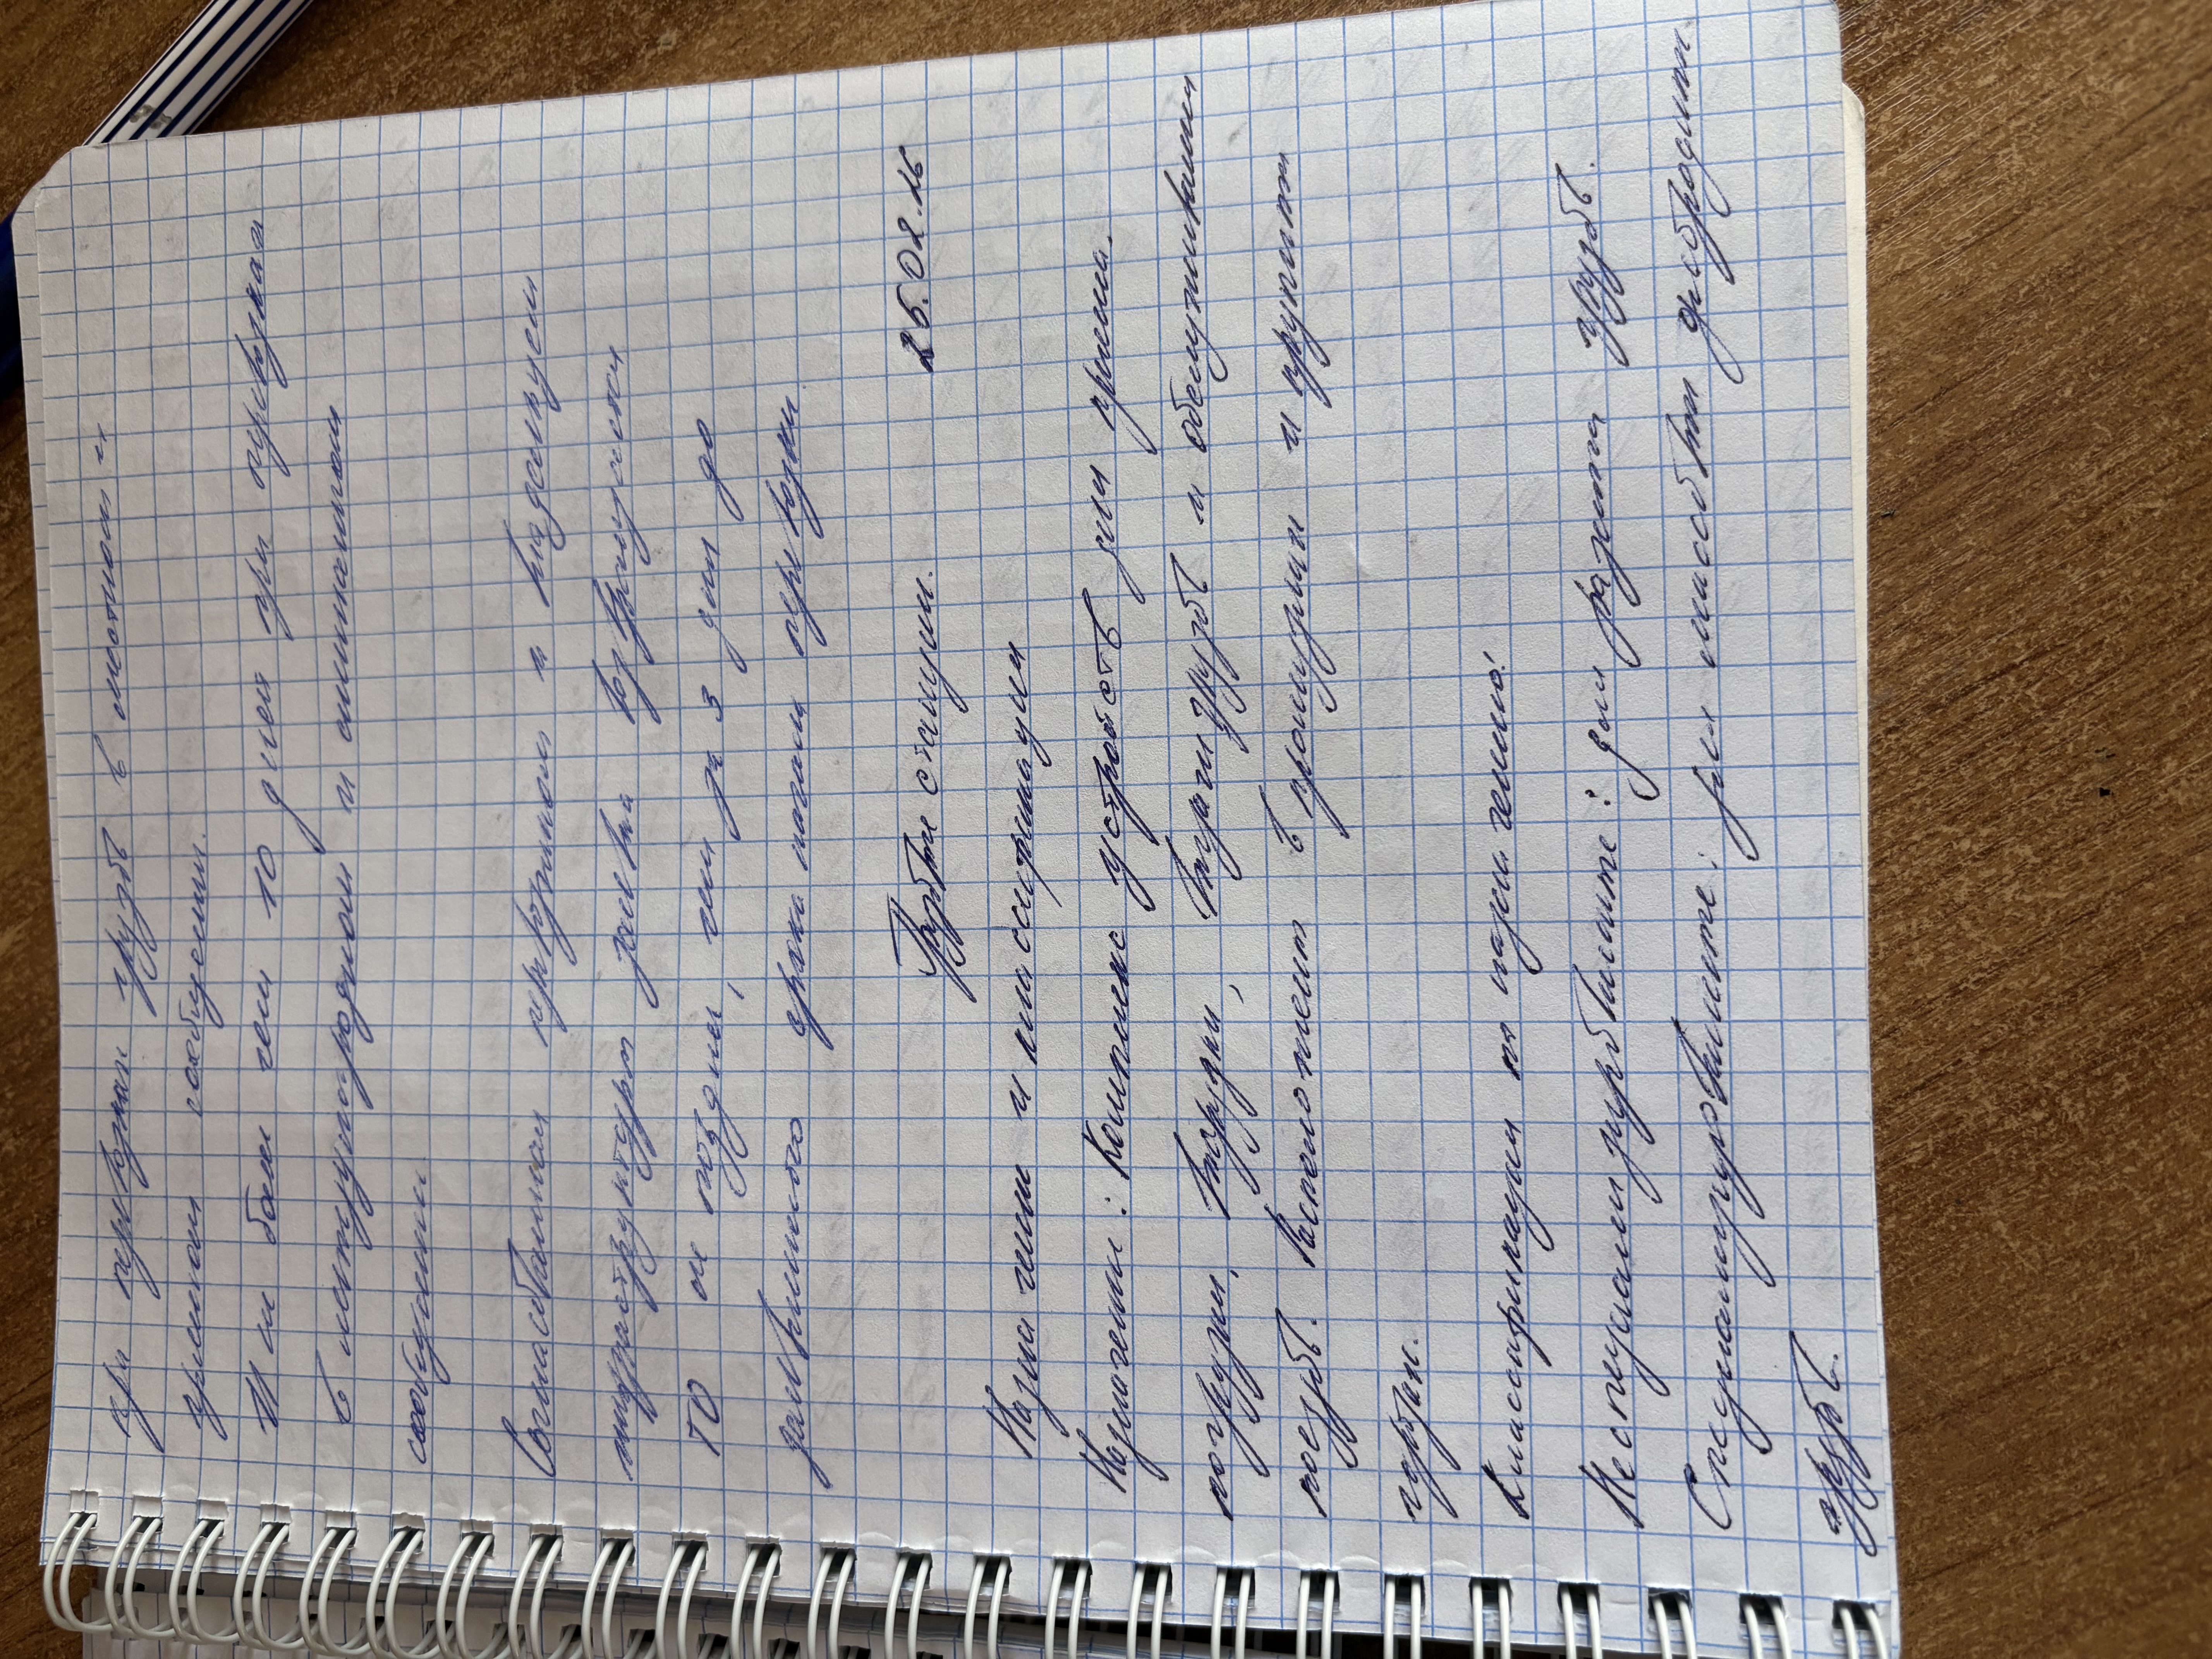 при перевозках грузов в местном и
прямом сообщении.
И не более чем 10 дней при перевозках
в международном и смешанном
сообщении
Согласованная перевозчиком и владельцем
инфраструктуры заявка возвращается
ГО не позднее, чем за 3 дня до
заявленного срока начала перевозки
25.02.26
Грузовые станции.
Назначение и классификация
Назначение: Комплекс устройств для приема,
погрузки, выгрузки, выдачи грузов и обслуживания
поездов. Располагают в промузлах и крупных
городах.
Классификация по назначению:
Неспециализированные: для разных грузов.
Специализированные: для массовых однородных
грузов.